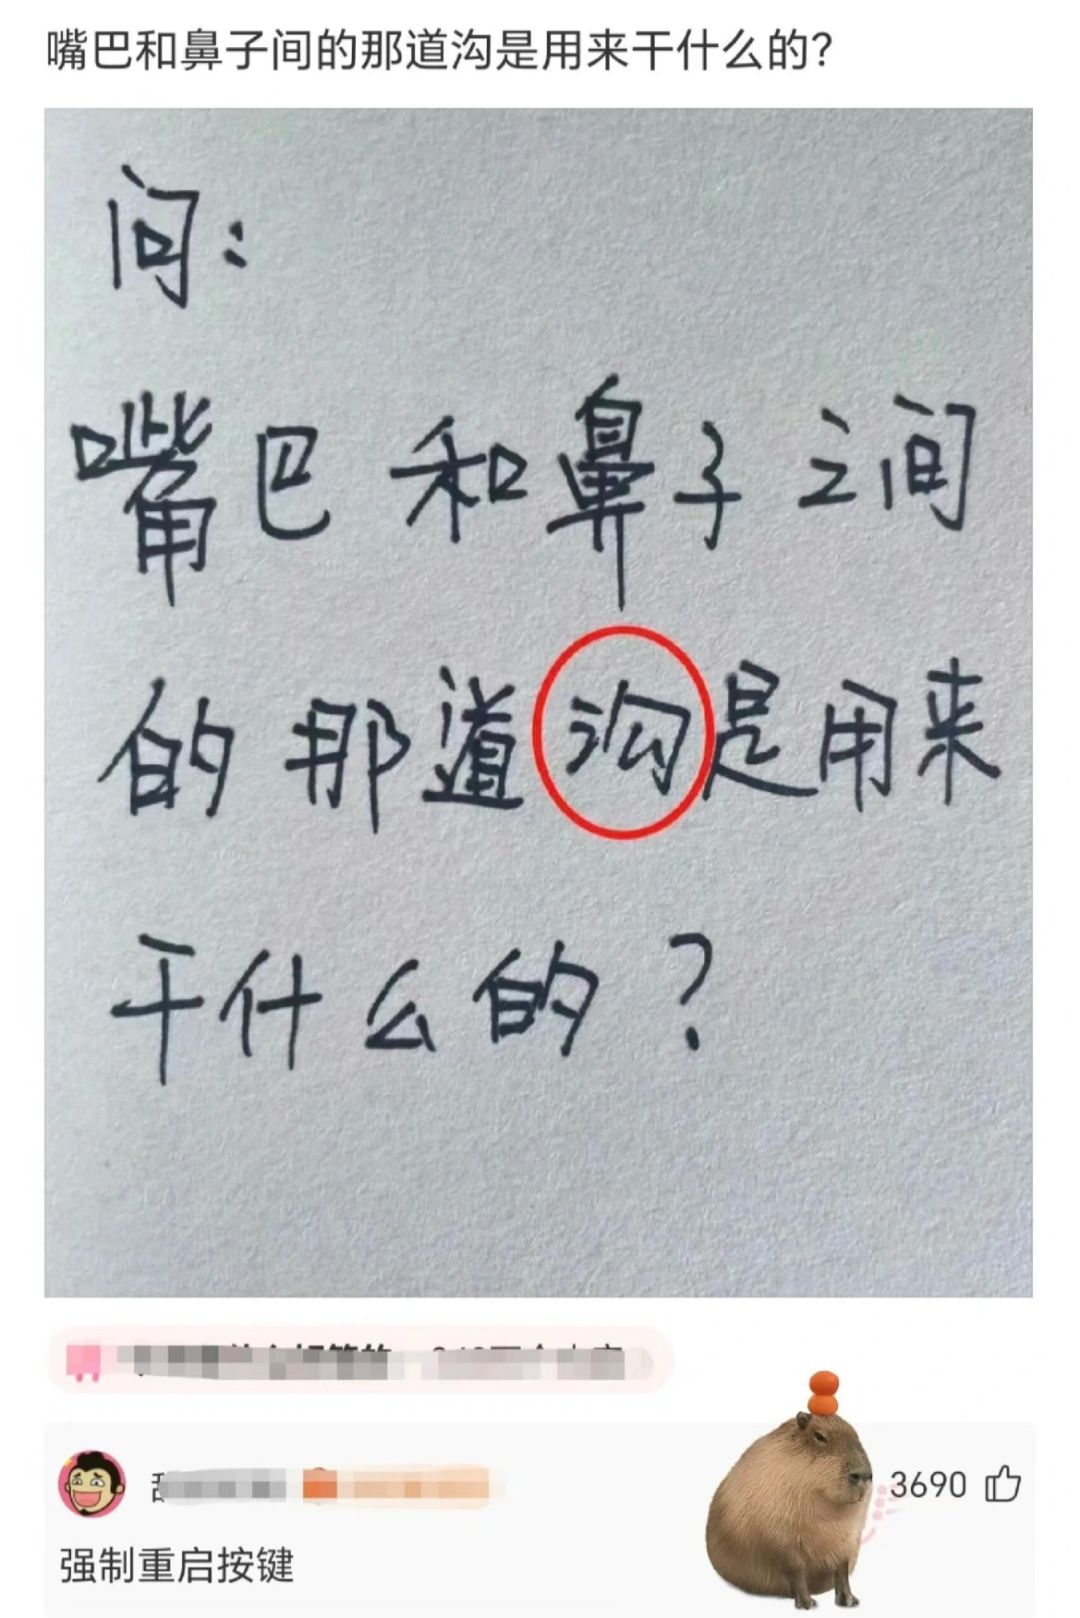 嘴巴和鼻子间的那道沟是用来干什么的?
问:
嘴巴和鼻子之间
的那道沟是用来
干什么的?
3690
强制重启按键